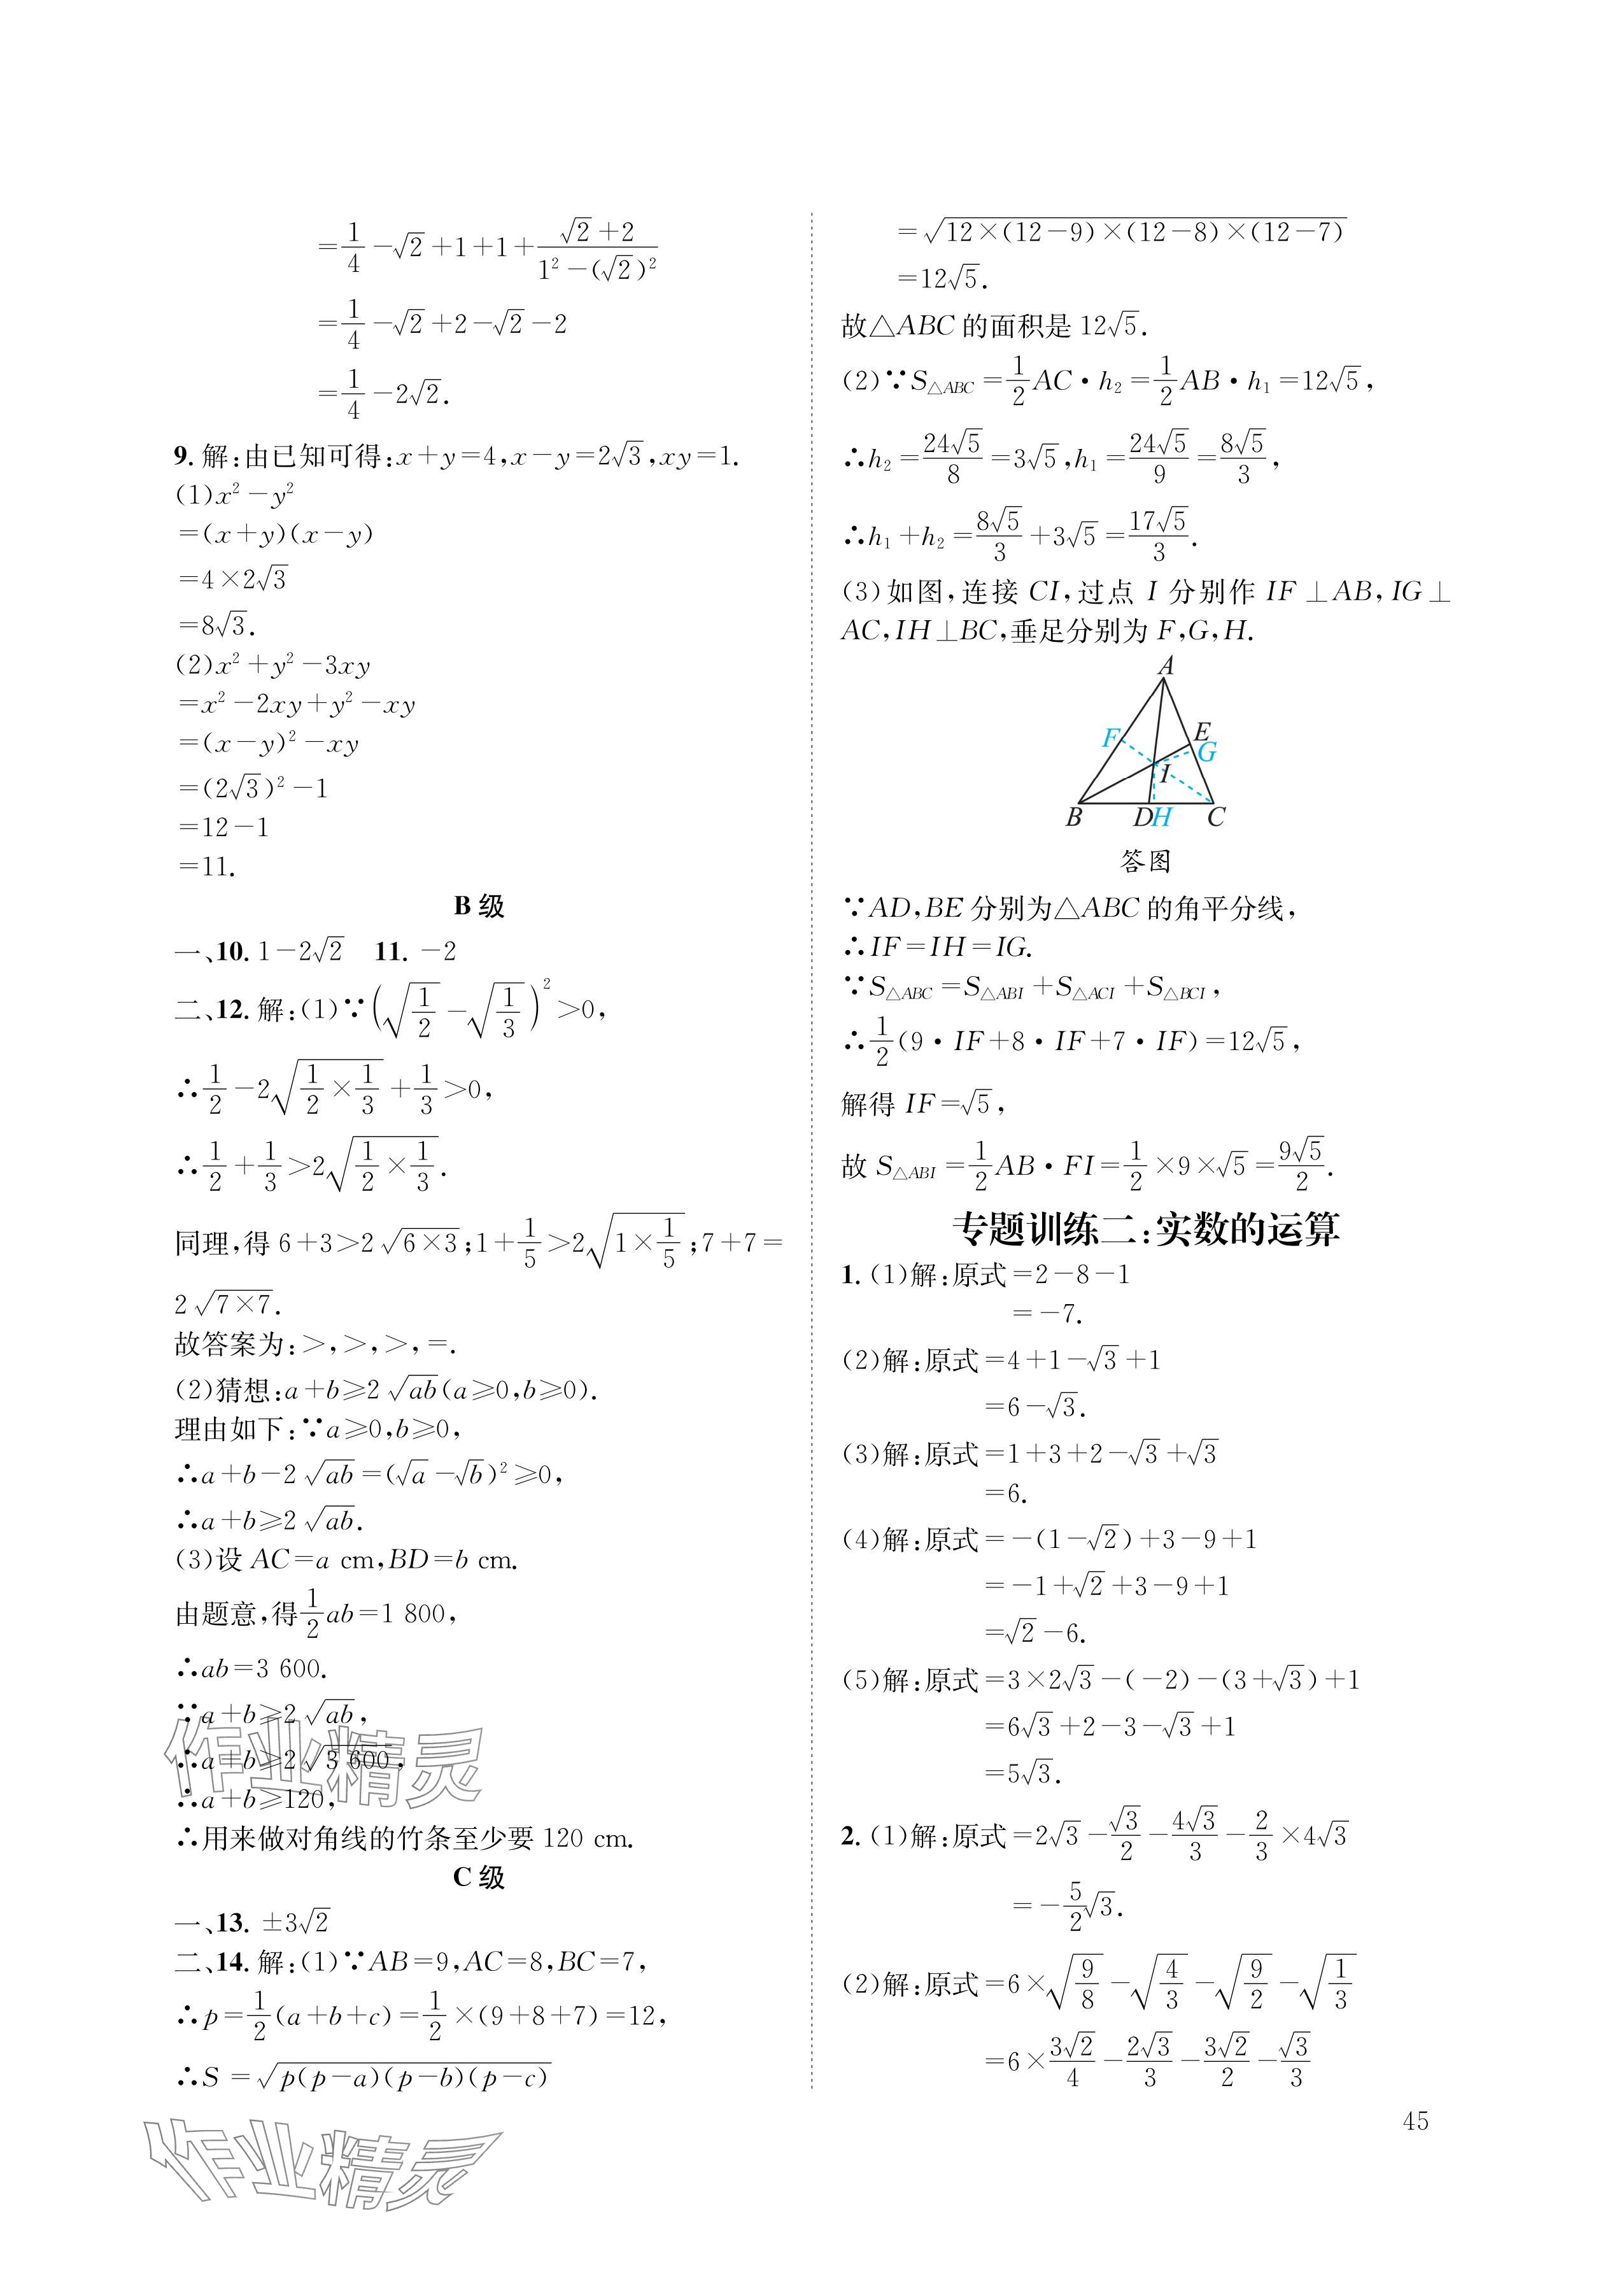 =1/4-√2+1+1+(√2+2)/(1²-(√2)²)
=1/4-√2+2-√2-2
=1/4-2√2.
9. 解:由已知可得:x+y=4,x-y=2√3,xy=1.
(1)x²-y²
=(x+y)(x-y)
=4×2√3
=8√3.
(2)x²+y²-3xy
=x²-2xy+y²-xy
=(x-y)²-xy
=(2√3)²-1
=12-1
=11.
B 级
一、10. 1-2√2 11. -2
二、12. 解:(1)∵(√(1/2)-√(1/3))²>0,
∴1/2-2√(1/2×1/3)+1/3>0,
∴1/2+1/3>2√(1/2×1/3).
同理,得 6+3>2√(6×3);1+1/5>2√(1×1/5);7+7=
2√(7×7).
故答案为:>,>,>,=.
(2)猜想:a+b≥2√(ab)(a≥0,b≥0).
理由如下:∵a≥0,b≥0,
∴a+b-2√(ab)=(√a-√b)²≥0,
∴a+b≥2√(ab).
(3)设 AC=a cm,BD=b cm.
由题意,得1/2ab=1 800,
∴ab=3 600.
∵a+b≥2√(ab),
∴a+b≥2√(3 600),
∴a+b≥120,
∴用来做对角线的竹条至少要 120 cm.
C 级
一、13. ±3√2
二、14. 解:(1)∵AB=9,AC=8,BC=7,
∴p=1/2(a+b+c)=1/2×(9+8+7)=12,
∴S=√(p(p-a)(p-b)(p-c))
=√(12×(12-9)×(12-8)×(12-7))
=12√5.
故△ABC 的面积是 12√5.
(2)∵S△ABC=1/2AC·h₂=1/2AB·h₁=12√5,
∴h₂=24√5/8=3√5,h₁=24√5/9=8√5/3,
∴h₁+h₂=8√5/3+3√5=17√5/3.
(3)如图,连接 CI,过点 I 分别作 IF⊥AB,IG⊥
AC,IH⊥BC,垂足分别为 F,G,H.
A
F
E
G
I
B
D
H
C
答图
∵AD,BE 分别为△ABC 的角平分线,
∴IF=IH=IG.
∵S△ABC=S△ABI+S△ACI+S△BCI,
∴1/2(9·IF+8·IF+7·IF)=12√5,
解得 IF=√5,
故 S△ABI=1/2AB·FI=1/2×9×√5=9√5/2.
专题训练二:实数的运算
1. (1)解:原式=2-8-1
=-7.
(2)解:原式=4+1-√3+1
=6-√3.
(3)解:原式=1+3+2-√3+√3
=6.
(4)解:原式=-(1-√2)+3-9+1
=-1+√2+3-9+1
=√2-6.
(5)解:原式=3×2√3-(-2)-(3+√3)+1
=6√3+2-3-√3+1
=5√3.
2. (1)解:原式=2√3-√3/2-4√3/3-2/3×4√3
=-5/2√3.
(2)解:原式=6×√(9/8)-√(4/3)-√(9/2)-√(1/3)
=6×3√2/4-2√3/3-3√2/2-√3/3
45
作业精灵
作业精灵